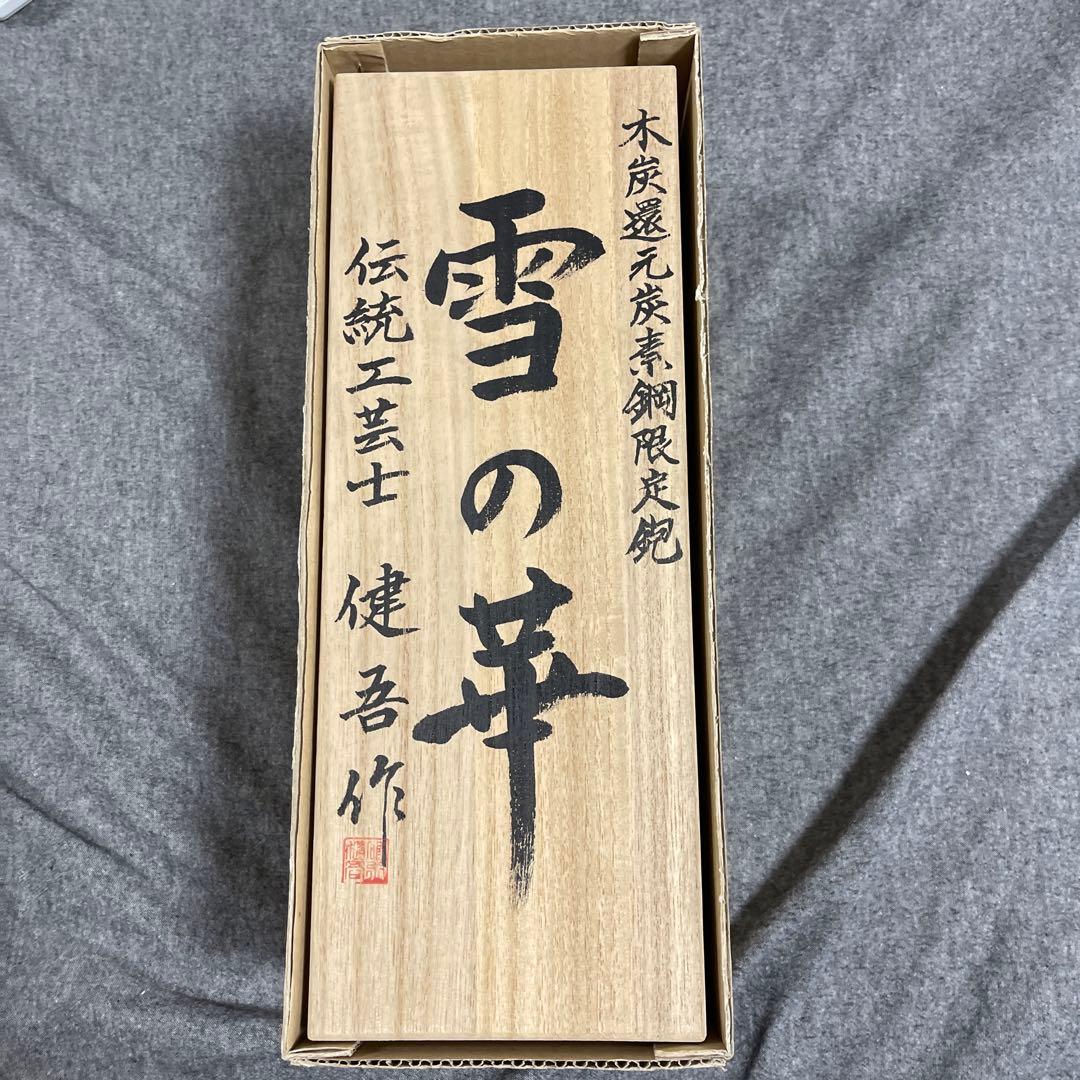 木炭還元炭素鋼限定鉋
雪の華
伝統工芸士 健吾作